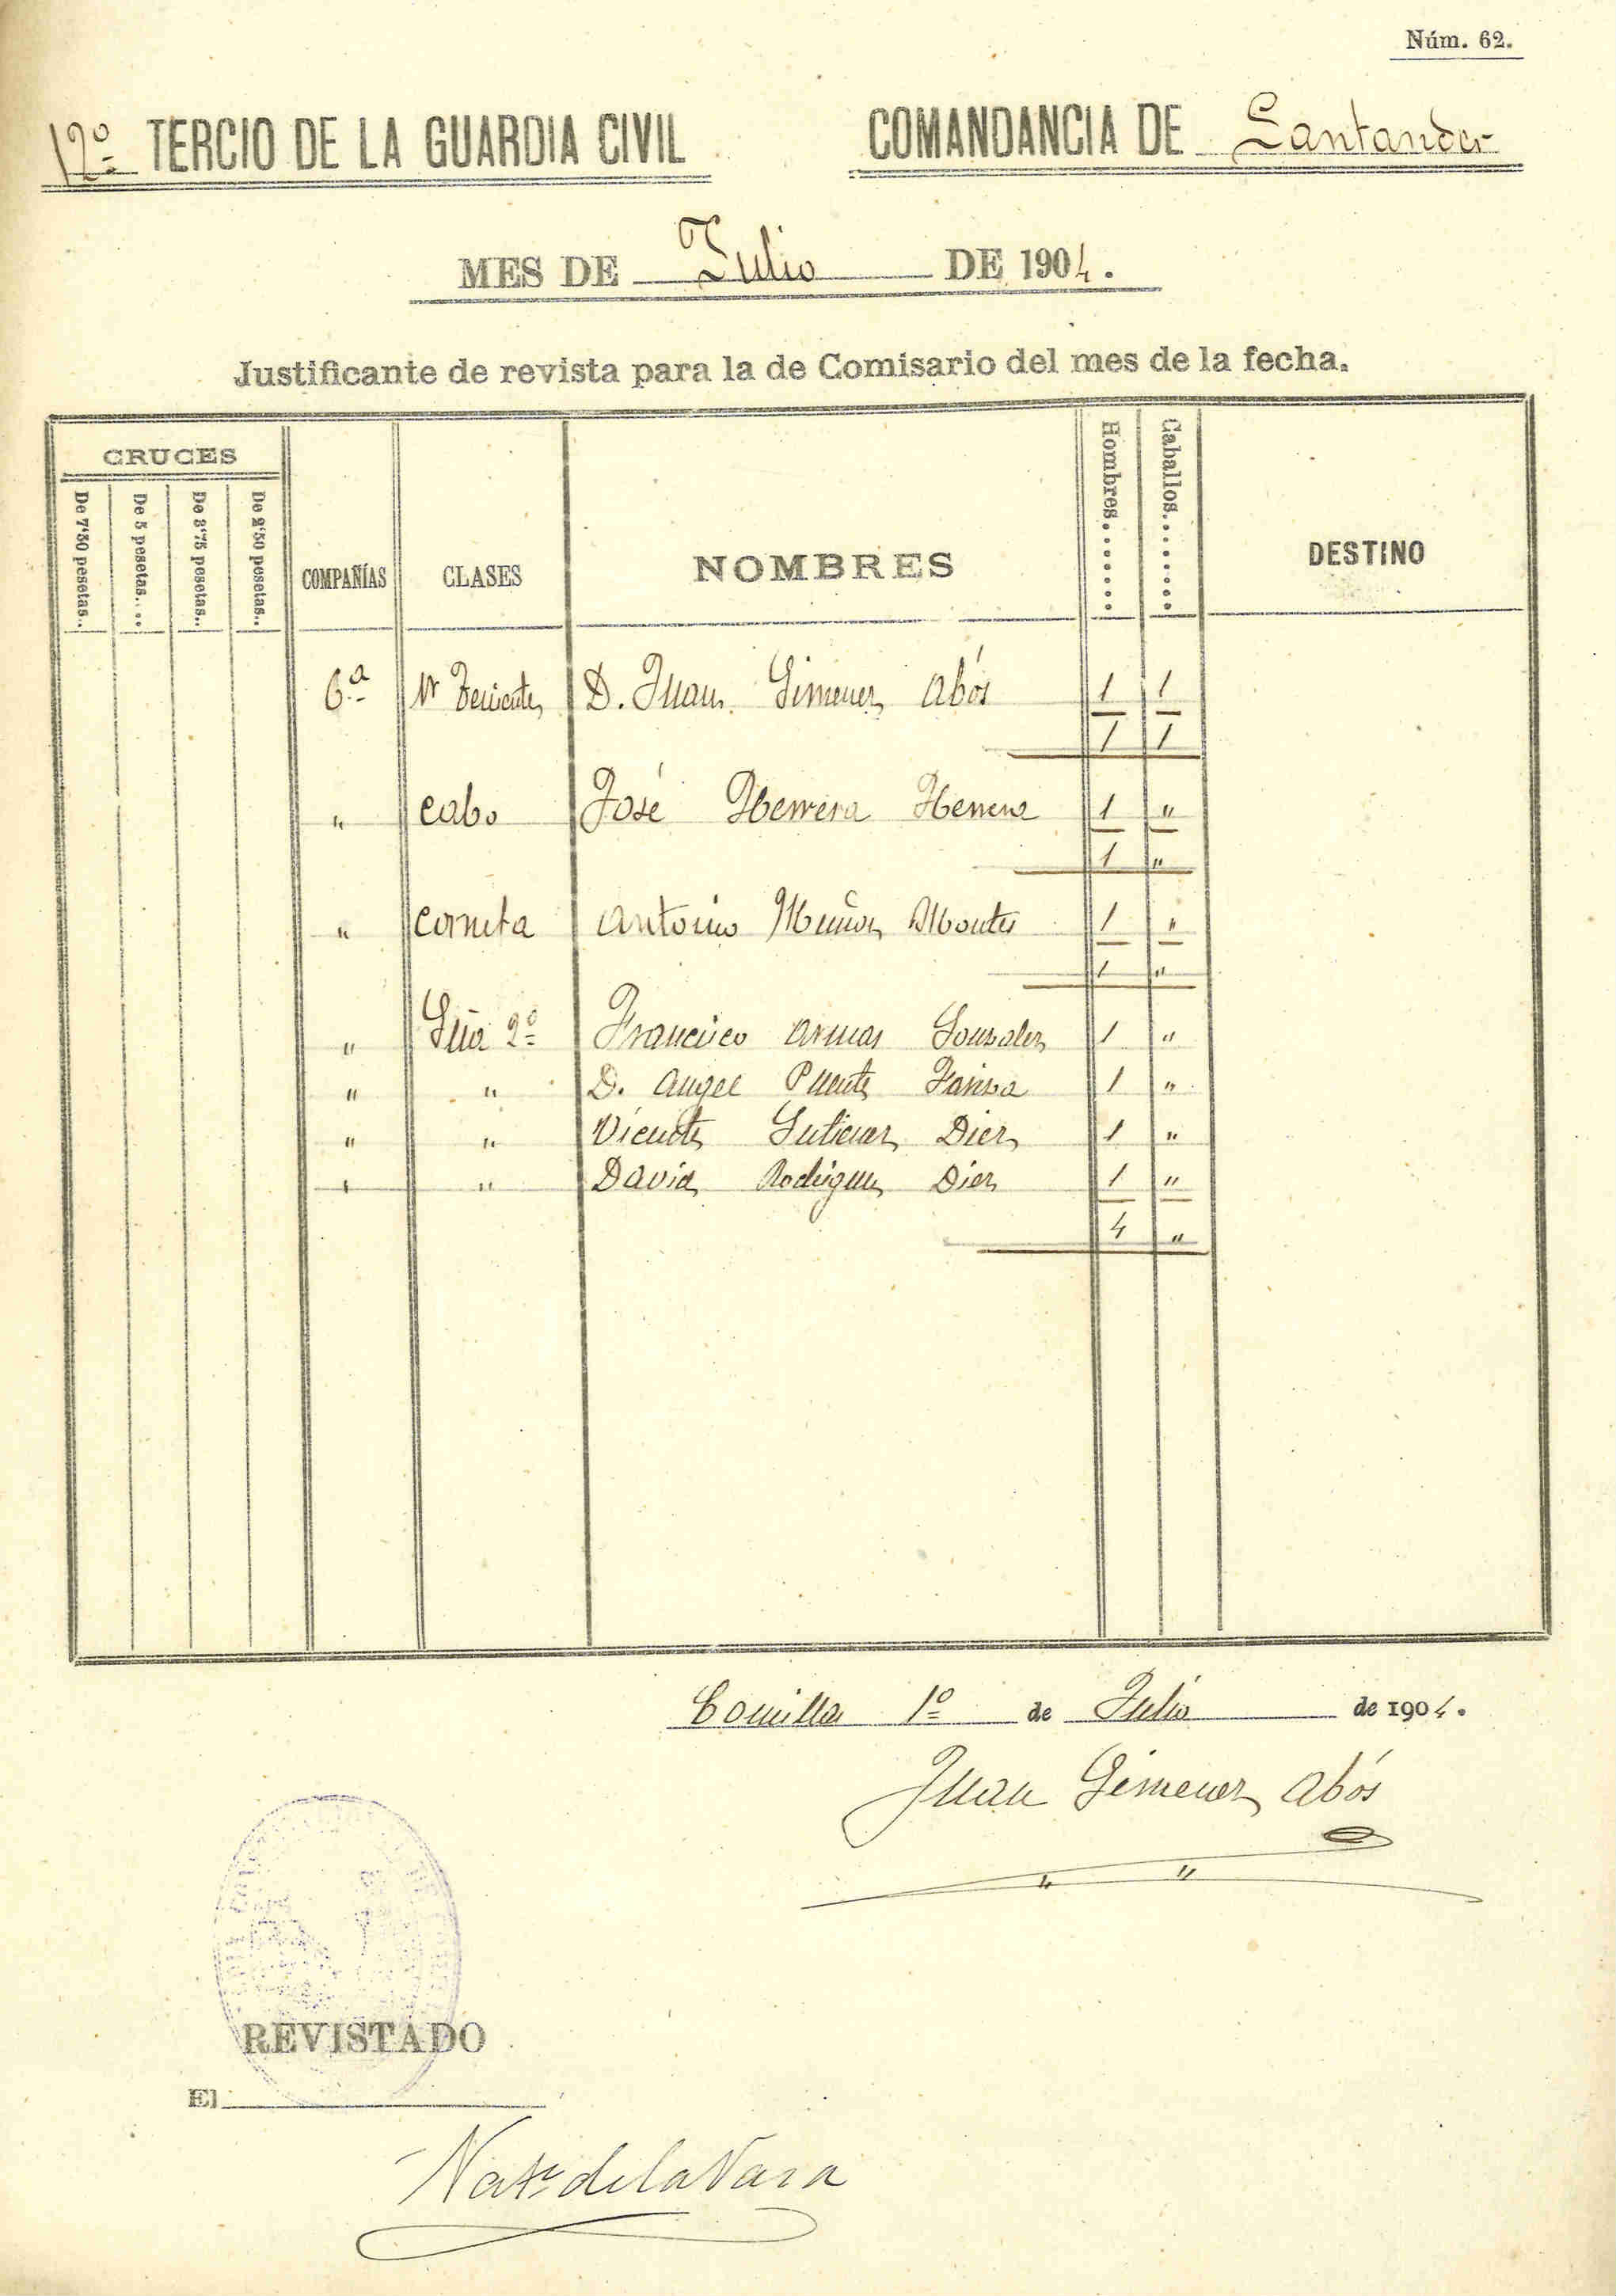 Núm. 62.
12º TERCIO DE LA GUARDIA CIVIL COMANDANCIA DE Santander
MES DE Julio DE 1904.
Justificante de revista para la de Comisario del mes de la fecha.
CRUCES
De 7'50 pesetas..
De 5 pesetas....
De 3'75 pesetas..
De 2'50 pesetas..
COMPAÑÍAS
CLASES
NOMBRES
Hombres........
Caballos........
DESTINO
6ª 1r Teniente D. Juan Gimenez Abós 1 1
1 1
" Cabo José Herrera Herrera 1 "
1 "
" Corneta Antonio Muñoz Montes 1 "
1 "
" Gua 2º Francisco Armas Gonzalez 1 "
" " D. Angel Puente 1 "
" " Vicente Gutierrez Diez 1 "
" " David Rodriguez Diez 1 "
4 "
Comilla 1º de Julio de 1904.
Juan Gimenez Abós
REVISTADO
El
de la Vara